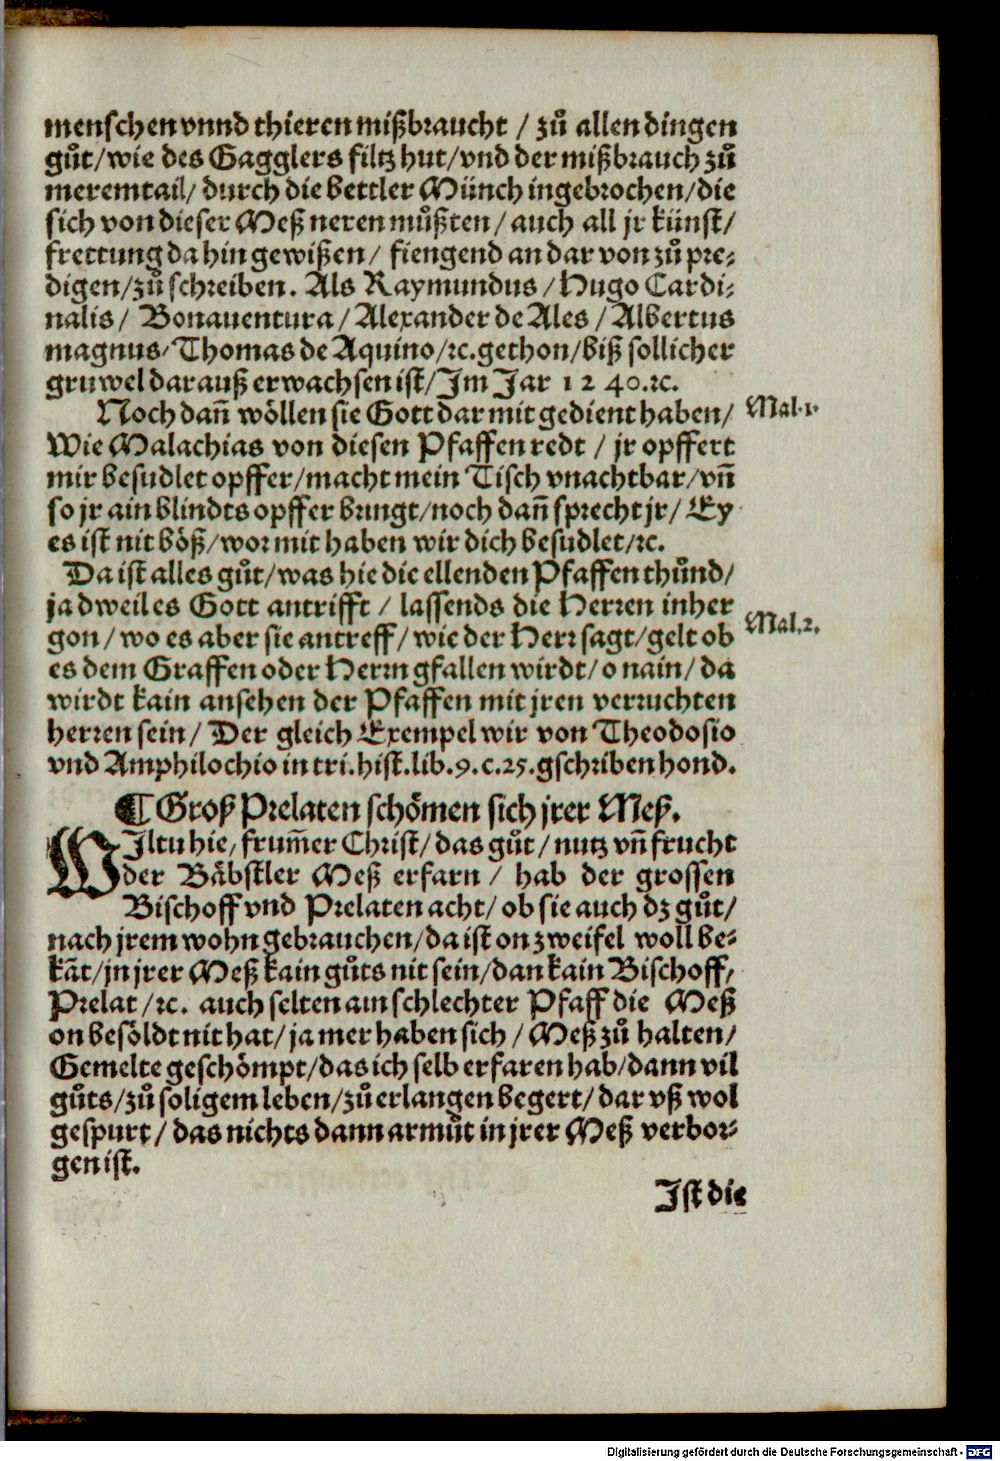 menschen vnnd thieren mißbraucht / zů allen dingen
gůt/wie des Gagglers filtz hut/vnd der mißbrauch zů
meremtail/ durch die bettler Münch ingebrochen/die
sich von dieser Meß neren můßten / auch all jr künst/
frettung da hin gewißen / fiengend an dar von zů pre⸗
digen/zů schreiben. Als Raymundus / Hugo Cardi⸗
nalis / Bonauentura / Alexander de Ales / Albertus
magnus/Thomas de Aquino/ꝛc.gethon/biß sollicher
gruwel darauß erwachsen ist/Im Jar 1240.ꝛc.
Noch dañ wöllen sie Gott dar mit gedient haben/ Mal.1.
Wie Malachias von diesen Pfaffen redt / jr opffert
mir besudlet opffer/macht mein Tisch vnachtbar/vñ
so jr ain blindts opffer bringt/noch dañ sprecht jr/ Ey
es ist nit böß/wor mit haben wir dich besudlet/ꝛc.
Da ist alles gůt/was hie die ellenden Pfaffen thůnd/
ja dweil es Gott antrifft / lassends die Herren inher
gon/wo es aber sie antreff/wie der Herr sagt/gelt ob Mal.2.
es dem Graffen oder Herrn gfallen wirdt/o nain/da
wirdt kain ansehen der Pfaffen mit jren verruchten
herren sein/ Der gleich Exempel wir von Theodosio
vnd Amphilochio in tri.hist.lib.9.c.25.gschriben hond.
¶ Groß Prelaten schömen sich jrer Meß.
WIltu hie/frum̃er Christ/das gůt/nutz vñ frucht
der Bäbstler Meß erfarn / hab der grossen
Bischoff vnd Prelaten acht/ob sie auch dz gůt/
nach jrem wohn gebrauchen/da ist on zweifel woll be⸗
kãt/jn jrer Meß kain gůts nit sein/dan kain Bischoff/
Prelat /ꝛc. auch selten ain schlechter Pfaff die Meß
on besöldt nit hat/ja mer haben sich / Meß zů halten/
Gemelte geschömpt/das ich selb erfaren hab/dann vil
gůts/zů soligem leben/zů erlangen begert/dar vß wol
gespurt/das nichts dann armůt in jrer Meß verbor⸗
gen ist.
Ist die
Digitalisierung gefördert durch die Deutsche Forschungsgemeinschaft - DFG